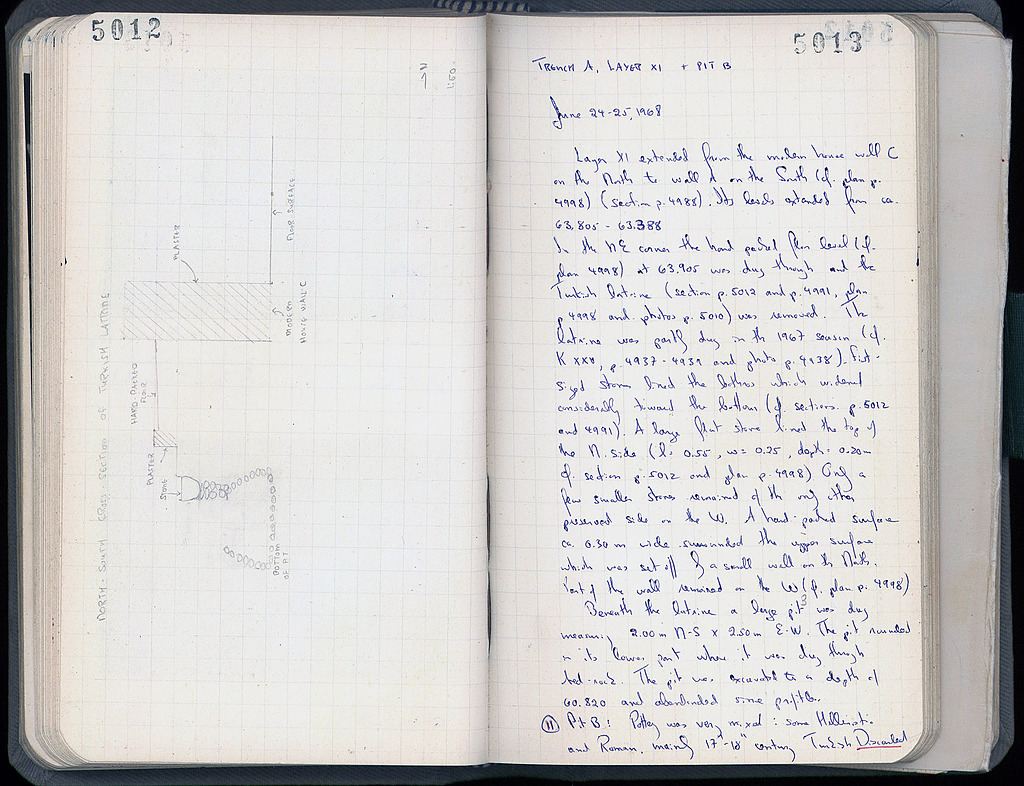 5012
N
1:50
PLASTER
FLOOR SURFACE
MODERN
HOUSE WALL C
HARD PACKED
FLOOR
PLASTER
STONE
BOTTOM
OF PIT
NORTH-SOUTH CROSS SECTION OF TURKISH LATRINE
5013
TRENCH A, LAYER XI + PIT B
June 24-25, 1968
Layer XI extended from the modern house wall C
on the North to wall on the South (cf. plan p.
4998) (section p. 4988). Its levels extended from ca.
63.805 - 63.388
In the NE corner the hard packed floor level (cf.
plan 4998) at 63.905 was dug through and the
Turkish latrine (section p. 5012 and p. 4991, plan
p 4998 and photos p. 5010) was removed. The
latrine was partly dug in the 1967 season (cf.
K XXX, p. 4937-4939 and photo p. 4938). Fist-
sized stones lined the bothros which widened
considerably toward the bottom (cf. sections p. 5012
and 4991). A large flat stone lined the top of
the N. side (l= 0.55, w= 0.25, depth= 0.20m
cf. section p. 5012 and plan p. 4998) Only a
few smaller stones remained of the only other
preserved side on the W. A hard-packed surface
ca. 0.30 m wide surrounded the upper surface
which was set off by a small wall on the North.
Part of the wall remained on the W (cf. plan p. 4998)
Beneath the latrine a large pit was dug
measuring 2.00 m N-S x 2.50 m E-W. The pit rounded
in its lower part where it was dug through
bed-rock. The pit was excavated to a depth of
60.820 and abandoned since profitless.
11 Pit B: Pottery was very mixed: some Hellenistic
and Roman, mainly 17th-18th century Turkish Discarded